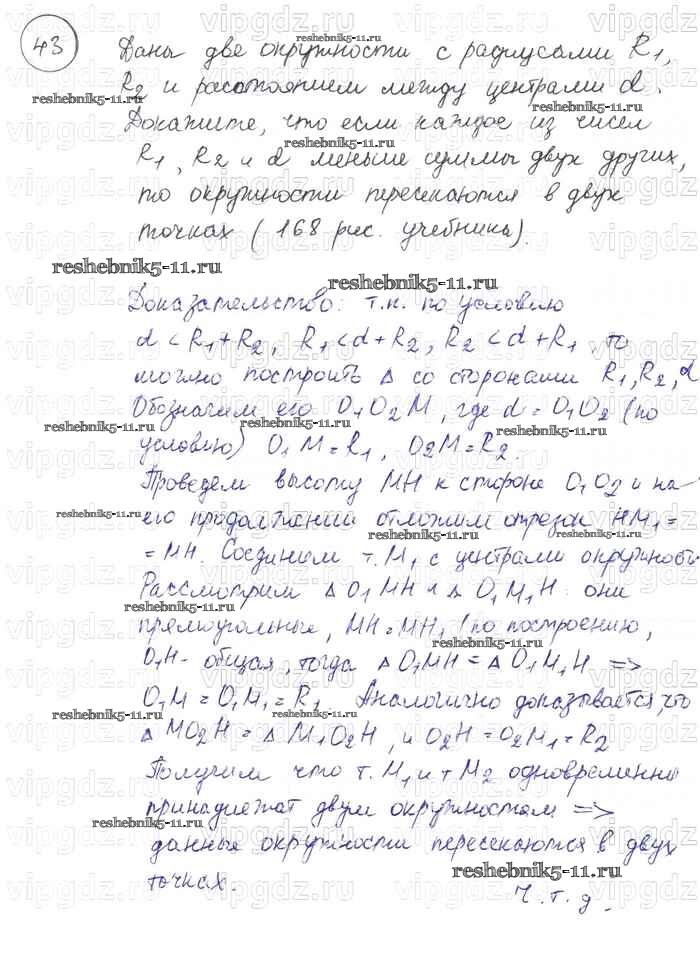 43
Даны две окружности с радиусами R1,
R2 и расстоянием между центрами d.
Докажите, что если каждое из чисел
R1, R2 и d меньше суммы двух других,
то окружности пересекаются в двух
точках (168 рис. учебника).
reshebnik5-11.ru
Доказательство: т.к. по условию
d < R1+R2, R1 < d+R2, R2 < d+R1 то
можно построить Δ со сторонами R1, R2, d
Обозначим его O1O2M, где d = O1O2 (по
условию) O1M = R1, O2M = R2.
Проведем высоту MH к стороне O1O2 и на
его продолжении отложим отрезок HM1 =
= MH. Соединим т. M1 с центрами окружность
Рассмотрим Δ O1MH и Δ O1M1H: они
прямоугольные, MH = MH1 (по построению,
O1H - общая, тогда Δ O1MH = Δ O1M1H =>
O1M = O1M1 = R1 Аналогично доказывается, что
Δ MO2H = Δ M1O2H, и O2H = O2M1 = R2
Получим что т. M1 и т M2 одновременно
принадлежат двум окружностям =>
данные окружности пересекаются в двух
точках.
Ч.т.д.